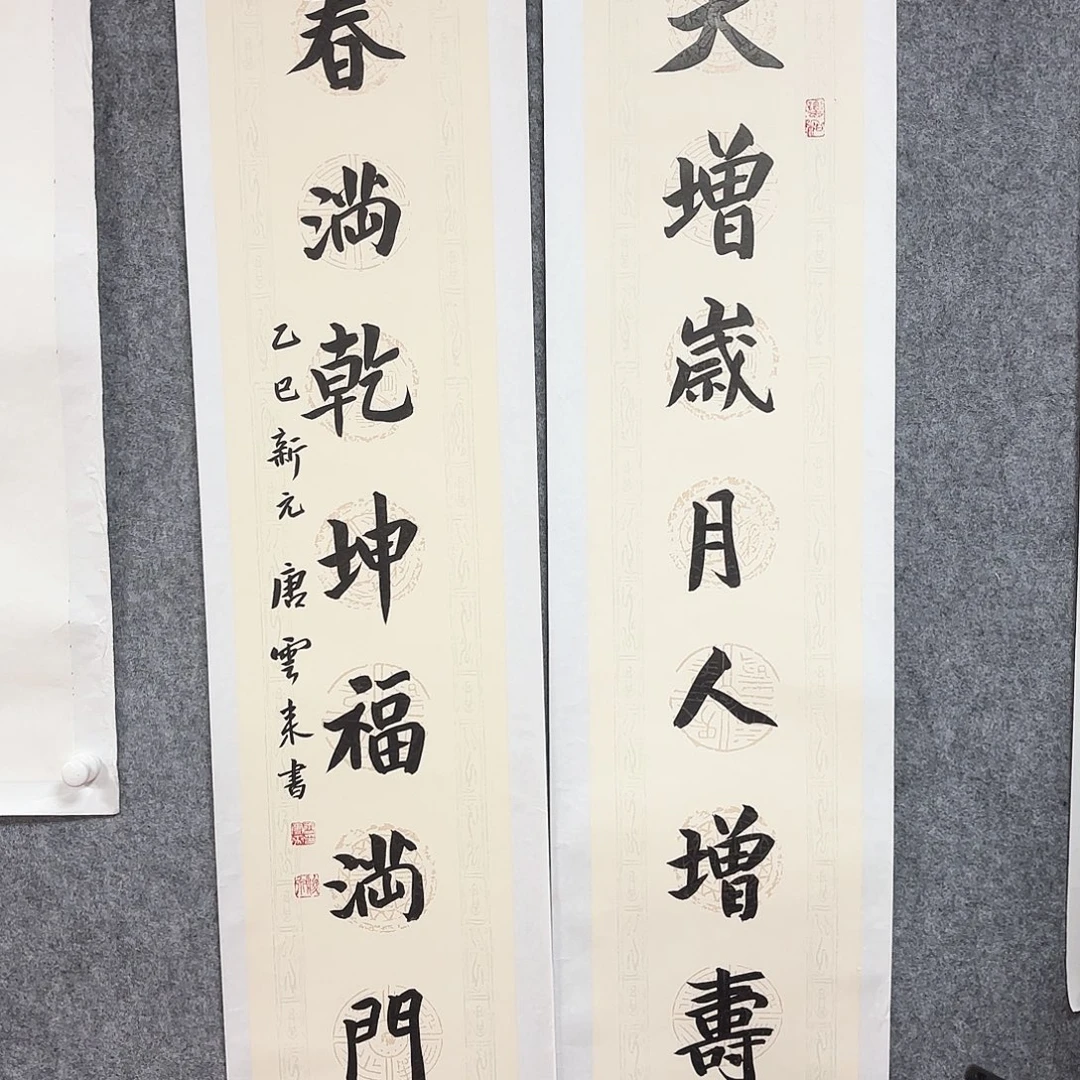 天增歲月人增壽
春満乾坤福満門
乙巳新元 唐雲来書